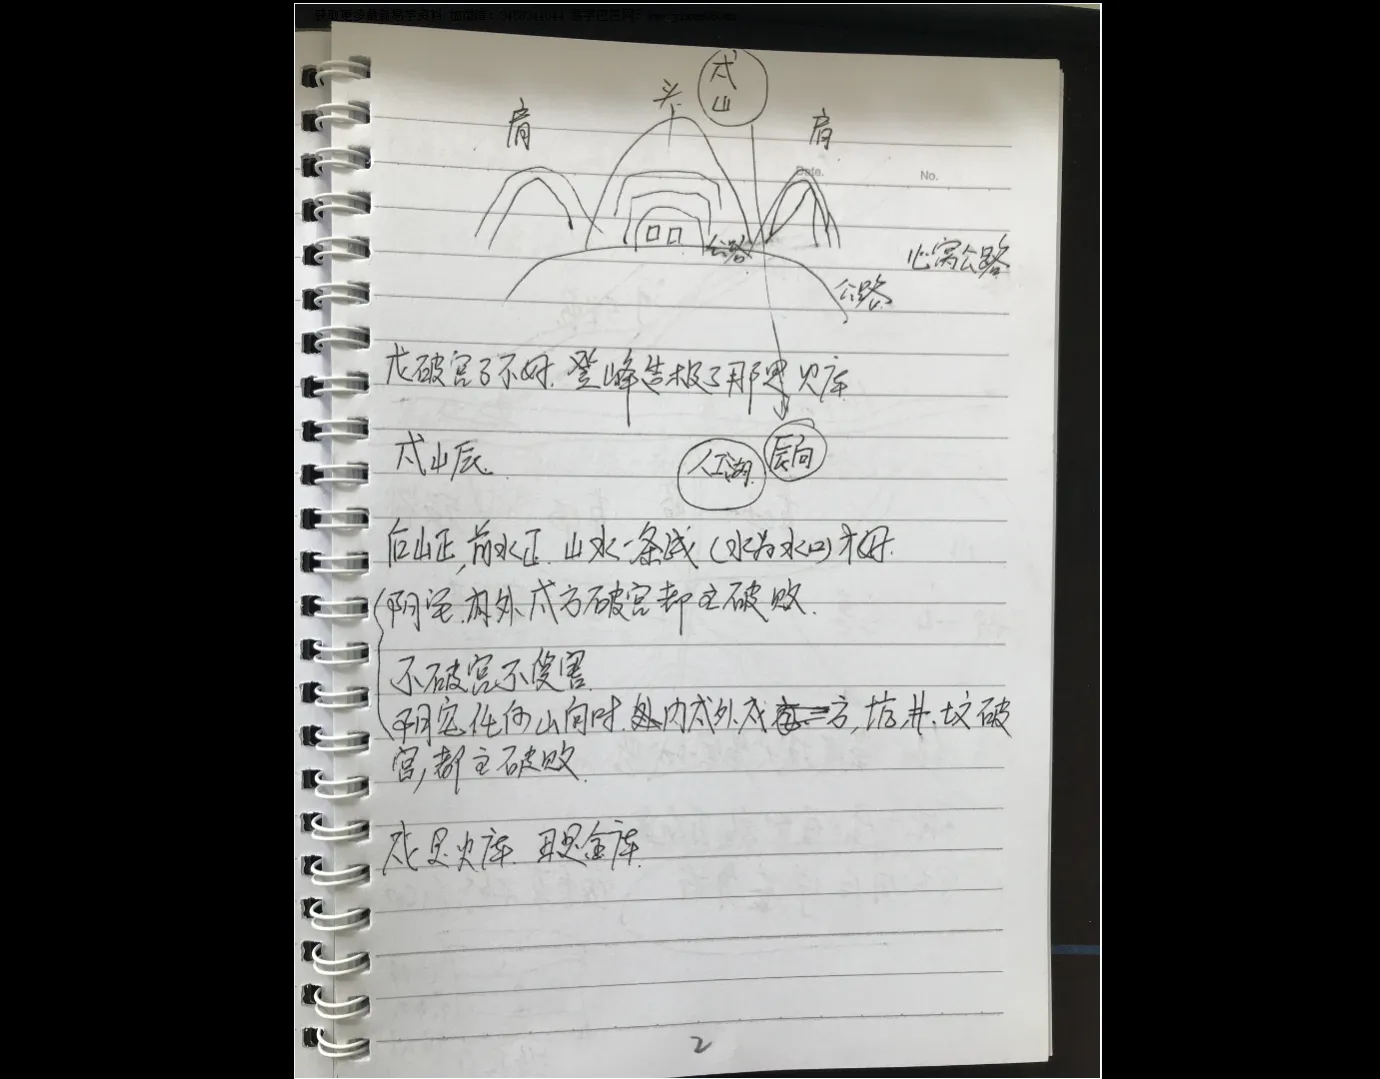 戌山
头
肩
肩
Date.
No.
公路
心窝公路
公路
戌破宫了不好.登峰告极了那是火库
戌山辰.
人工湖.
辰向
后山正,前水正.山水一条线(水为水口)才好.
阴宅.内外戌方破宫都主破败.
不破宫不伤害.
阴宅任何山向时.内戌外戌方,坑,井.坟破
宫,都主破败.
戌是火库.丑是金库.
2